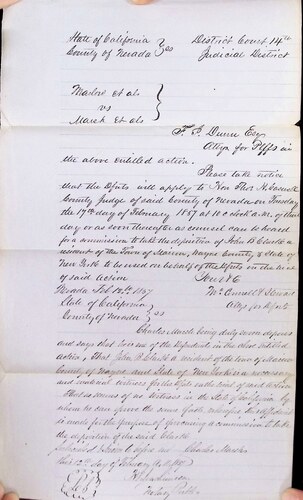 State of California } ss District Court 14th
County of Nevada Judicial District
Marlow et als
vs
Marsh et als
F. J. Dunn Esq
Atty for Plffs in
the above entitled action.
Please take notice
that the Defts will apply to Hon Thos H. Caswell
County Judge of said County of Nevada on Tuesday
the 17th day of February 1857 at 10 o'clock A.M. of that
day or as soon thereafter as counsel can be heard
for a commission to take the deposition of John B. Clark a
resident of the Town of Marion, Wayne County & State of
New York to be used on behalf of the Defts on the trial
of said action
Nevada Feb 12th 1857 McConnell & Stewart
State of California Attys for Defts
County of Nevada } ss
Charles Marsh being duly sworn deposes
and says that he is one of the Defendants in the above entitled
action, That John B. Clark a resident of the town of Marion
County of Wayne and State of New York is a necessary
and material witness for the Defts on the trial of said action
That he knows of no witness in the State of California by
whom he can prove the same facts, wherefore this affidavit
is made for the purpose of procuring a commission to take
the deposition of the said Clark
Subscribed & sworn to before me Charles Marsh
this 12th day of February A.D. 1857
Notary Public